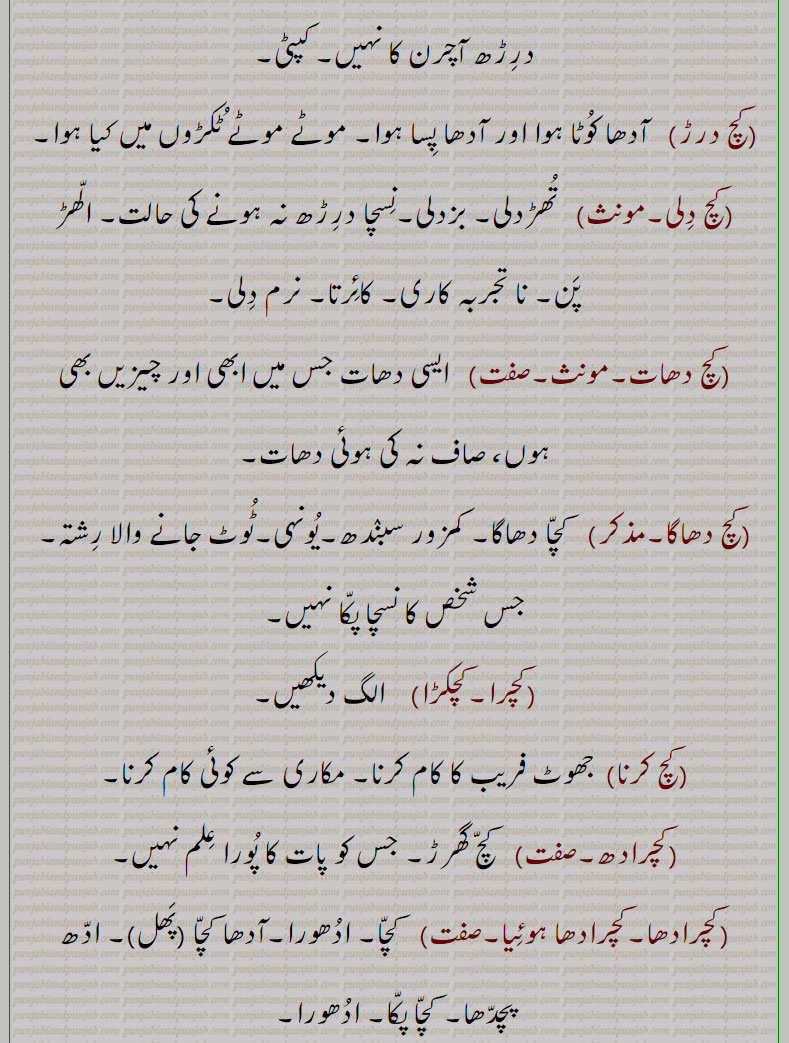 درِڑھ آچرن کا نہیں۔ کپٹی۔
(کچ درڑ) آدھا کُوٹا ہوا اور آدھا پِسا ہوا۔ موٹے موٹے ٹُکڑوں میں کیا ہوا۔
(کچ دِلی۔مونث) تُھڑدلی۔ بزدلی۔نِسچا درِڑھ نہ ہونے کی حالت۔ الّھڑ
پَن۔ نا تجربہ کاری۔ کائرتا۔ نرم دِلی۔
(کچ دھات۔مونث۔صفت) ایسی دھات جس میں ابھی اور چیزیں بھی
ہوں، صاف نہ کی ہوئی دھات۔
(کچ دھاگا۔مذکر) کچّا دھاگا۔ کمزور سبنٛدھ۔یُونہی۔ٹُوٹ جانے والا رِشتہ۔
جس شخص کا نسچا پکّا نہیں۔
(کچرا۔کچکڑا) الگ دیکھیں۔
(کچ کرنا) جھوٹ فریب کا کام کرنا۔ مکاری سے کوئی کام کرنا۔
(کچرادھ۔صفت) کچّ گھرڑ۔ جس کو پات کا پُورا عِلم نہیں۔
(کچرادھا۔کچرادھا ہوئیا۔صفت) کچّا۔ ادُھورا۔آدھا کچّا (پَھل)۔ ادّھ
پچدّھا۔ کچّا پکّا۔ ادُھورا۔